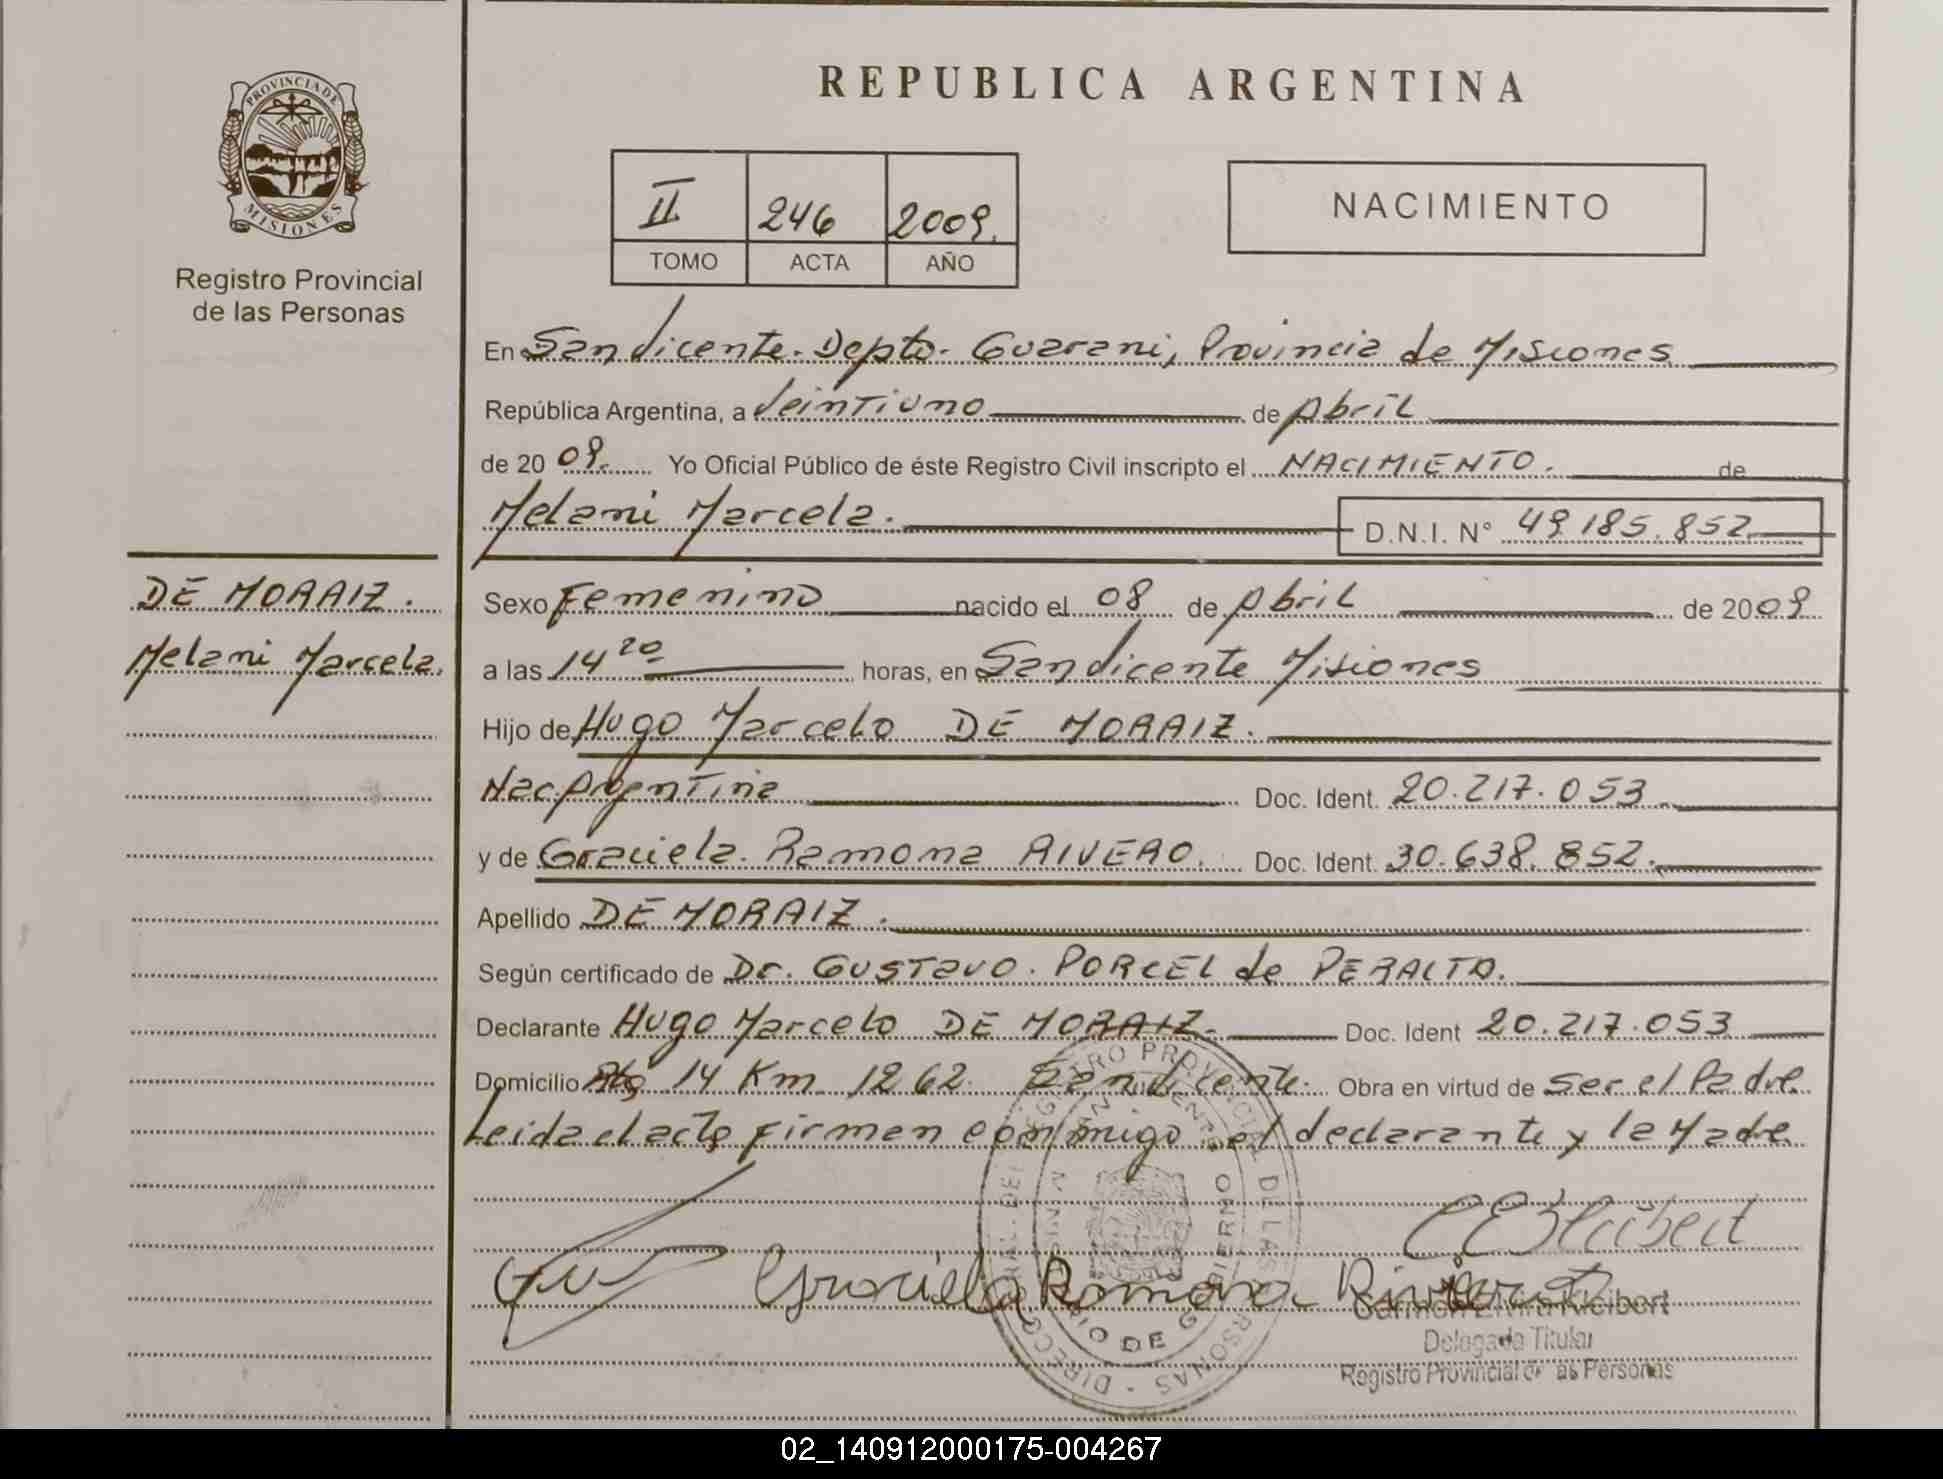 PROVINCIA DE
MISIONES
Registro Provincial
de las Personas
DE MORAIZ.
Melani Marcela.
REPUBLICA ARGENTINA
II 246 2009.
TOMO ACTA AÑO
NACIMIENTO
En San Vicente. Depto. Guarani, Provincia de Misiones
República Argentina, a Veintiuno de Abril
de 20 09. Yo Oficial Público de éste Registro Civil inscripto el NACIMIENTO. de
Melani Marcela. D.N.I. N° 49.185.852
Sexo Femenino nacido el 08 de Abril de 2009
a las 14 20 horas, en San Vicente Misiones
Hijo de Hugo Marcelo DE MORAIZ.
Nac. Argentina Doc. Ident. 20.217.053
y de Graciela Ramona RIVERO. Doc. Ident. 30.638.852.
Apellido DE MORAIZ.
Según certificado de Dr. GUSTAVO. PORCEL de PERALTA.
Declarante Hugo Marcelo DE MORAIZ. Doc. Ident 20.217.053
Domicilio 14 Km 1262 San Vicente. Obra en virtud de ser el Padre
Leida el acta firman conmigo el declarante y la Madre
Graciela Ramona Rivero
Carmen Elvira Kleibert
Delegada Titular
Registro Provincial de las Personas
02_140912000175-004267